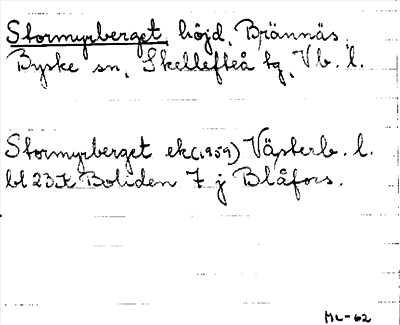 Stormyrberget, höjd, Brännäs,
Byske sn, Skellefteå tg, Vb. l.
Stormyrberget ek (1959) Västerb. l.
bl 23 K Boliden 7 j Blåfors.
ML-62